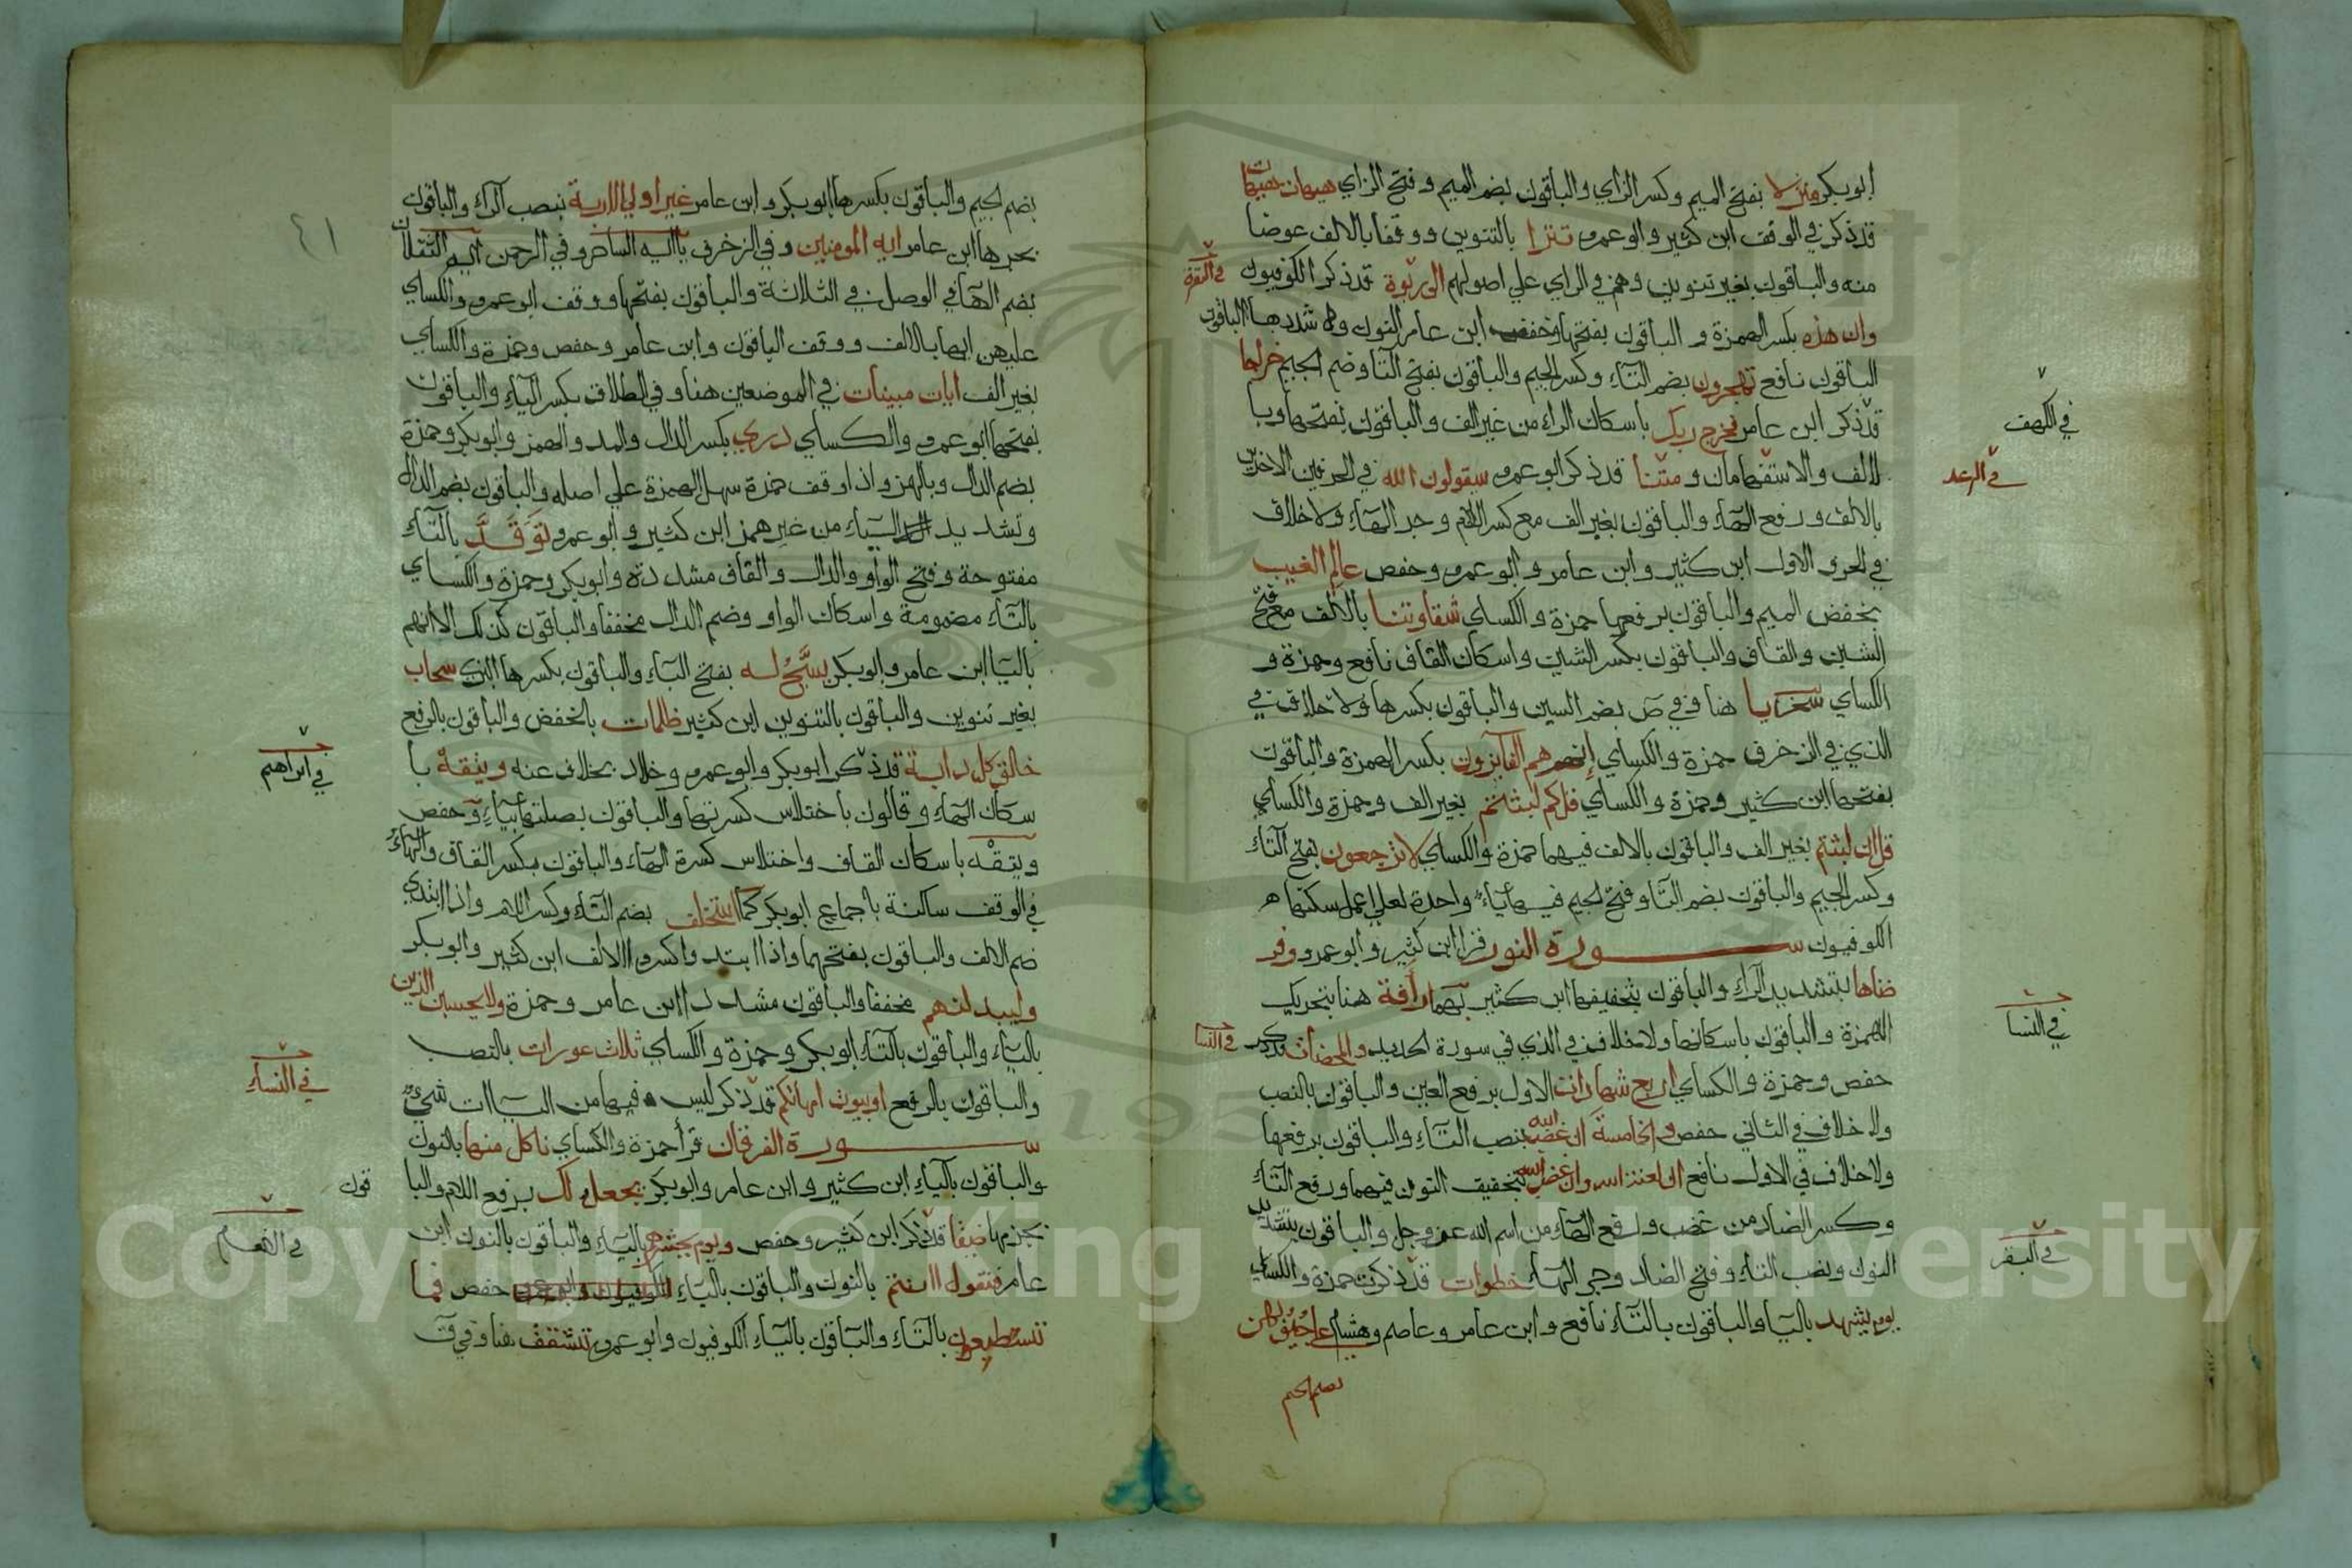 ابو بكر منزلا بفتح الميم وكسر الزاي والباقون بضم الميم وفتح الزاي هيهات هيهات
قد ذكر في الوقف ابن كثير وابو عمرو تترا بالتنوين ووقفا بالالف عوضا
منه والباقون بغير تنوين وهم في الراي علي اصولهم الى ربوة قد ذكر الكوفيون
في البقرة
وان هذه بكسر الهمزة و الباقون بفتحها وخفف ابن عامر النون وشددها الباقون
الباقون نافع تهجرون بضم التاء وكسر الجيم والباقون بفتح التا وضم الجيم خراجا
قد ذكر ابن عامر فخرج ربك باسكان الراء من غير الف والباقون بفتحها وبا
في الكهف
لالف والاستفهامان ومتنا قد ذكر ابو عمرو سيقولون الله في الحرفين الاخرين
في الرعد
بالالف ورفع الهاء والباقون بغير الف مع كسر اللام وجر الهاء ولا خلاف
في الحرف الاول ابن كثير وابن عامر وابو عمرو وحفص عالم الغيب
بخفض الميم والباقون برفعها حمزة والكساي شقاوتنا بالالف مع فتح
الشين والقاف والباقون بكسر الشين واسكان القاف نافع وحمزة و
الكساي سخريا هنا وفي ص بضم السين والباقون بكسرها ولا خلاف في
الذي في الزخرف حمزة والكساي انهم هم الفايزون بكسر الهمزة والباقون
بفتحها ابن كثير وحمزة والكساي قل كم لبثتم بغير الف وحمزة والكساي
قل ان لبثتم بغير الف والباقون بالالف فيهما حمزة والكساي لا ترجعون بفتح التاء
وكسر الجيم والباقون بضم التا وفتح الجيم فيها ياء واحدة لعلي اعمل سكنها
الكوفيون سورة النور قرا ابن كثير وابو عمرو وفر
ضناها بتشديد الراء والباقون بتخفيفها ابن كثير بهما رافة هنا بتحريك
الهمزة والباقون باسكانها ولا خلاف في الذي في سورة الحديد والمحصنات قد ذكر
في النسا
في النسا
حفص وحمزة والكساي اربع شهادات الاول برفع العين والباقون بالنصب
ولا خلاف في الثاني حفص والخامسة ان غضب الله بنصب التاء والباقون برفعها
ولا خلاف في الاول نافع ان لعنت الله وان غضب الله بتخفيف النون فيهما ورفع التاء
وكسر الضاد من غضب ورفع الهاء من اسم الله عز وجل والباقون بتشديد
النون ونصب التاء وفتح الضاد وجر الهاء خطوات قد ذكر حمزة والكساي
في البقر
يوم يشهد باليا والباقون بالتاء نافع وابن عامر وعاصم وهشام علي جيوبهن
بضم الجيم
٤١
بضم الجيم والباقون بكسرها ابو بكر وابن عامر غير اولي الاربة بنصب الراء والباقون
بجرها ابن عامر ايه المومنين وفي الزخرف ياايه الساحر وفي الرحمن ايه الثقلان
بضم الهاء في الوصل في الثلاثة والباقون بفتحها ووقف ابو عمرو والكساي
عليهن ايها بالالف ووقف الباقون وابن عامر وحفص وحمزة والكساي
بغير الف ايات مبينات في الموضعين هنا وفي الطلاق بكسر الياء والباقون
بفتحها ابو عمرو والكساي دري بكسر الدال والمد والهمز وابو بكر وحمزة
بضم الدال وبالهمز واذا وقف حمزة سهل الهمزة علي اصله والباقون بضم الدال
وتشديد الياء من غير همز ابن كثير وابو عمرو توقد بالتاء
مفتوحة وفتح الواو والدال والقاف مشددة وابو بكر وحمزة والكساي
بالتاء مضمومة واسكان الواو وضم الدال مخففا والباقون كذلك الا انهم
باليا ابن عامر وابو بكر يسبح له بفتح الباء والباقون بكسرها البزي سحاب
بغير تنوين والباقون بالتنوين ابن كثير ظلمات بالخفض والباقون بالرفع
خالق كل دابة قد ذكر ابو بكر وابو عمرو وخلاد بخلاف عنه ويتقه با
في ابراهيم
سكان الهاء وقالون باختلاس كسرتها والباقون بصلتها بياء وحفص
ويتقه باسكان القاف واختلاس كسرة الهاء والباقون بكسر القاف والهاء
في الوقف ساكنة باجماع ابو بكر كما استخلف بضم التاء وكسر اللام واذا ابتدي
ضم الالف والباقون بفتحهما واذا ابتدوا كسروا الالف ابن كثير وابو بكر
وليبدلنهم مخففا والباقون مشددا ابن عامر وحمزة ولا يحسبن الذين
بالياء والباقون بالتاء ابو بكر وحمزة والكساي ثلاث عورات بالنصب
في النساء
والباقون بالرفع او بيوت امهاتكم قد ذكر ليس فيها من الياات شيء
سورة الفرقان قرأ حمزة والكساي ناكل منها بالنون
والباقون بالياء ابن كثير وابن عامر وابو بكر يجعل لك برفع اللام والبا
قون
بجزمها ضيقا قد ذكر ابن كثير وحفص ويوم يحشرهم بالياء والباقون بالنون ابن
في الانعام
عامر فنقول اانتم بالنون والباقون بالياء حفص فما
تستطيعون بالتاء والباقون بالياء الكوفيون وابو عمرو تشقق هنا وفي ق
Copyright © King Saud University
195